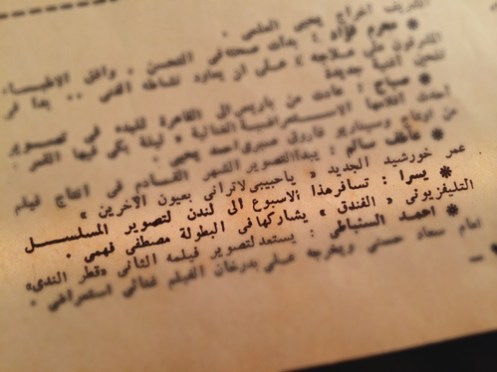 الشريف اخراج يحيى العلمي .
* محرم فؤاد : بدأت صحته في التحسن . وافق الاطباء
المشرفون على علاجه على ان يعاود نشاطه الفني .. بدأ في
تلحين اغنية جديدة
* صباح : عادت من باريس الى القاهرة للبدء في تصوير
أحدث افلامها الاستعراضية الغنائية « ليلة بكى فيها القمر »
من انتاج وسيناريو فاروق صبري احمد يحيى .
* عاطف سالم : يبدأ التصوير الشهر القادم في انتاج فيلم
عمر خورشيد الجديد « يا حبيبي لا تراني بعيون الآخرين »
* يسرا : تسافر هذا الاسبوع الى لندن لتصوير المسلسل
التليفزيوني « الفندق » يشاركها في البطولة مصطفى فهمي .
* احمد السنباطي : يستعد لتصوير فيلمه الثاني « قطر الندى »
امام سعاد حسني ويخرجه علي بدرخان الفيلم غنائي استعراضي .